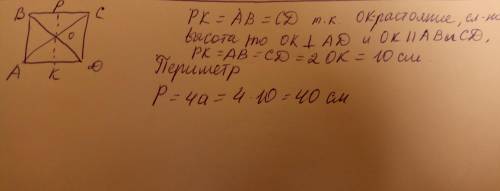 B P C
O
A K D
PK = AB = CD т.к. OK-растояние, сл-но
высота то OK ⊥ AD и OK || AB и CD,
PK = AB = CD = 2 OK = 10 см
Периметр
P = 4a = 4 · 10 = 40 см